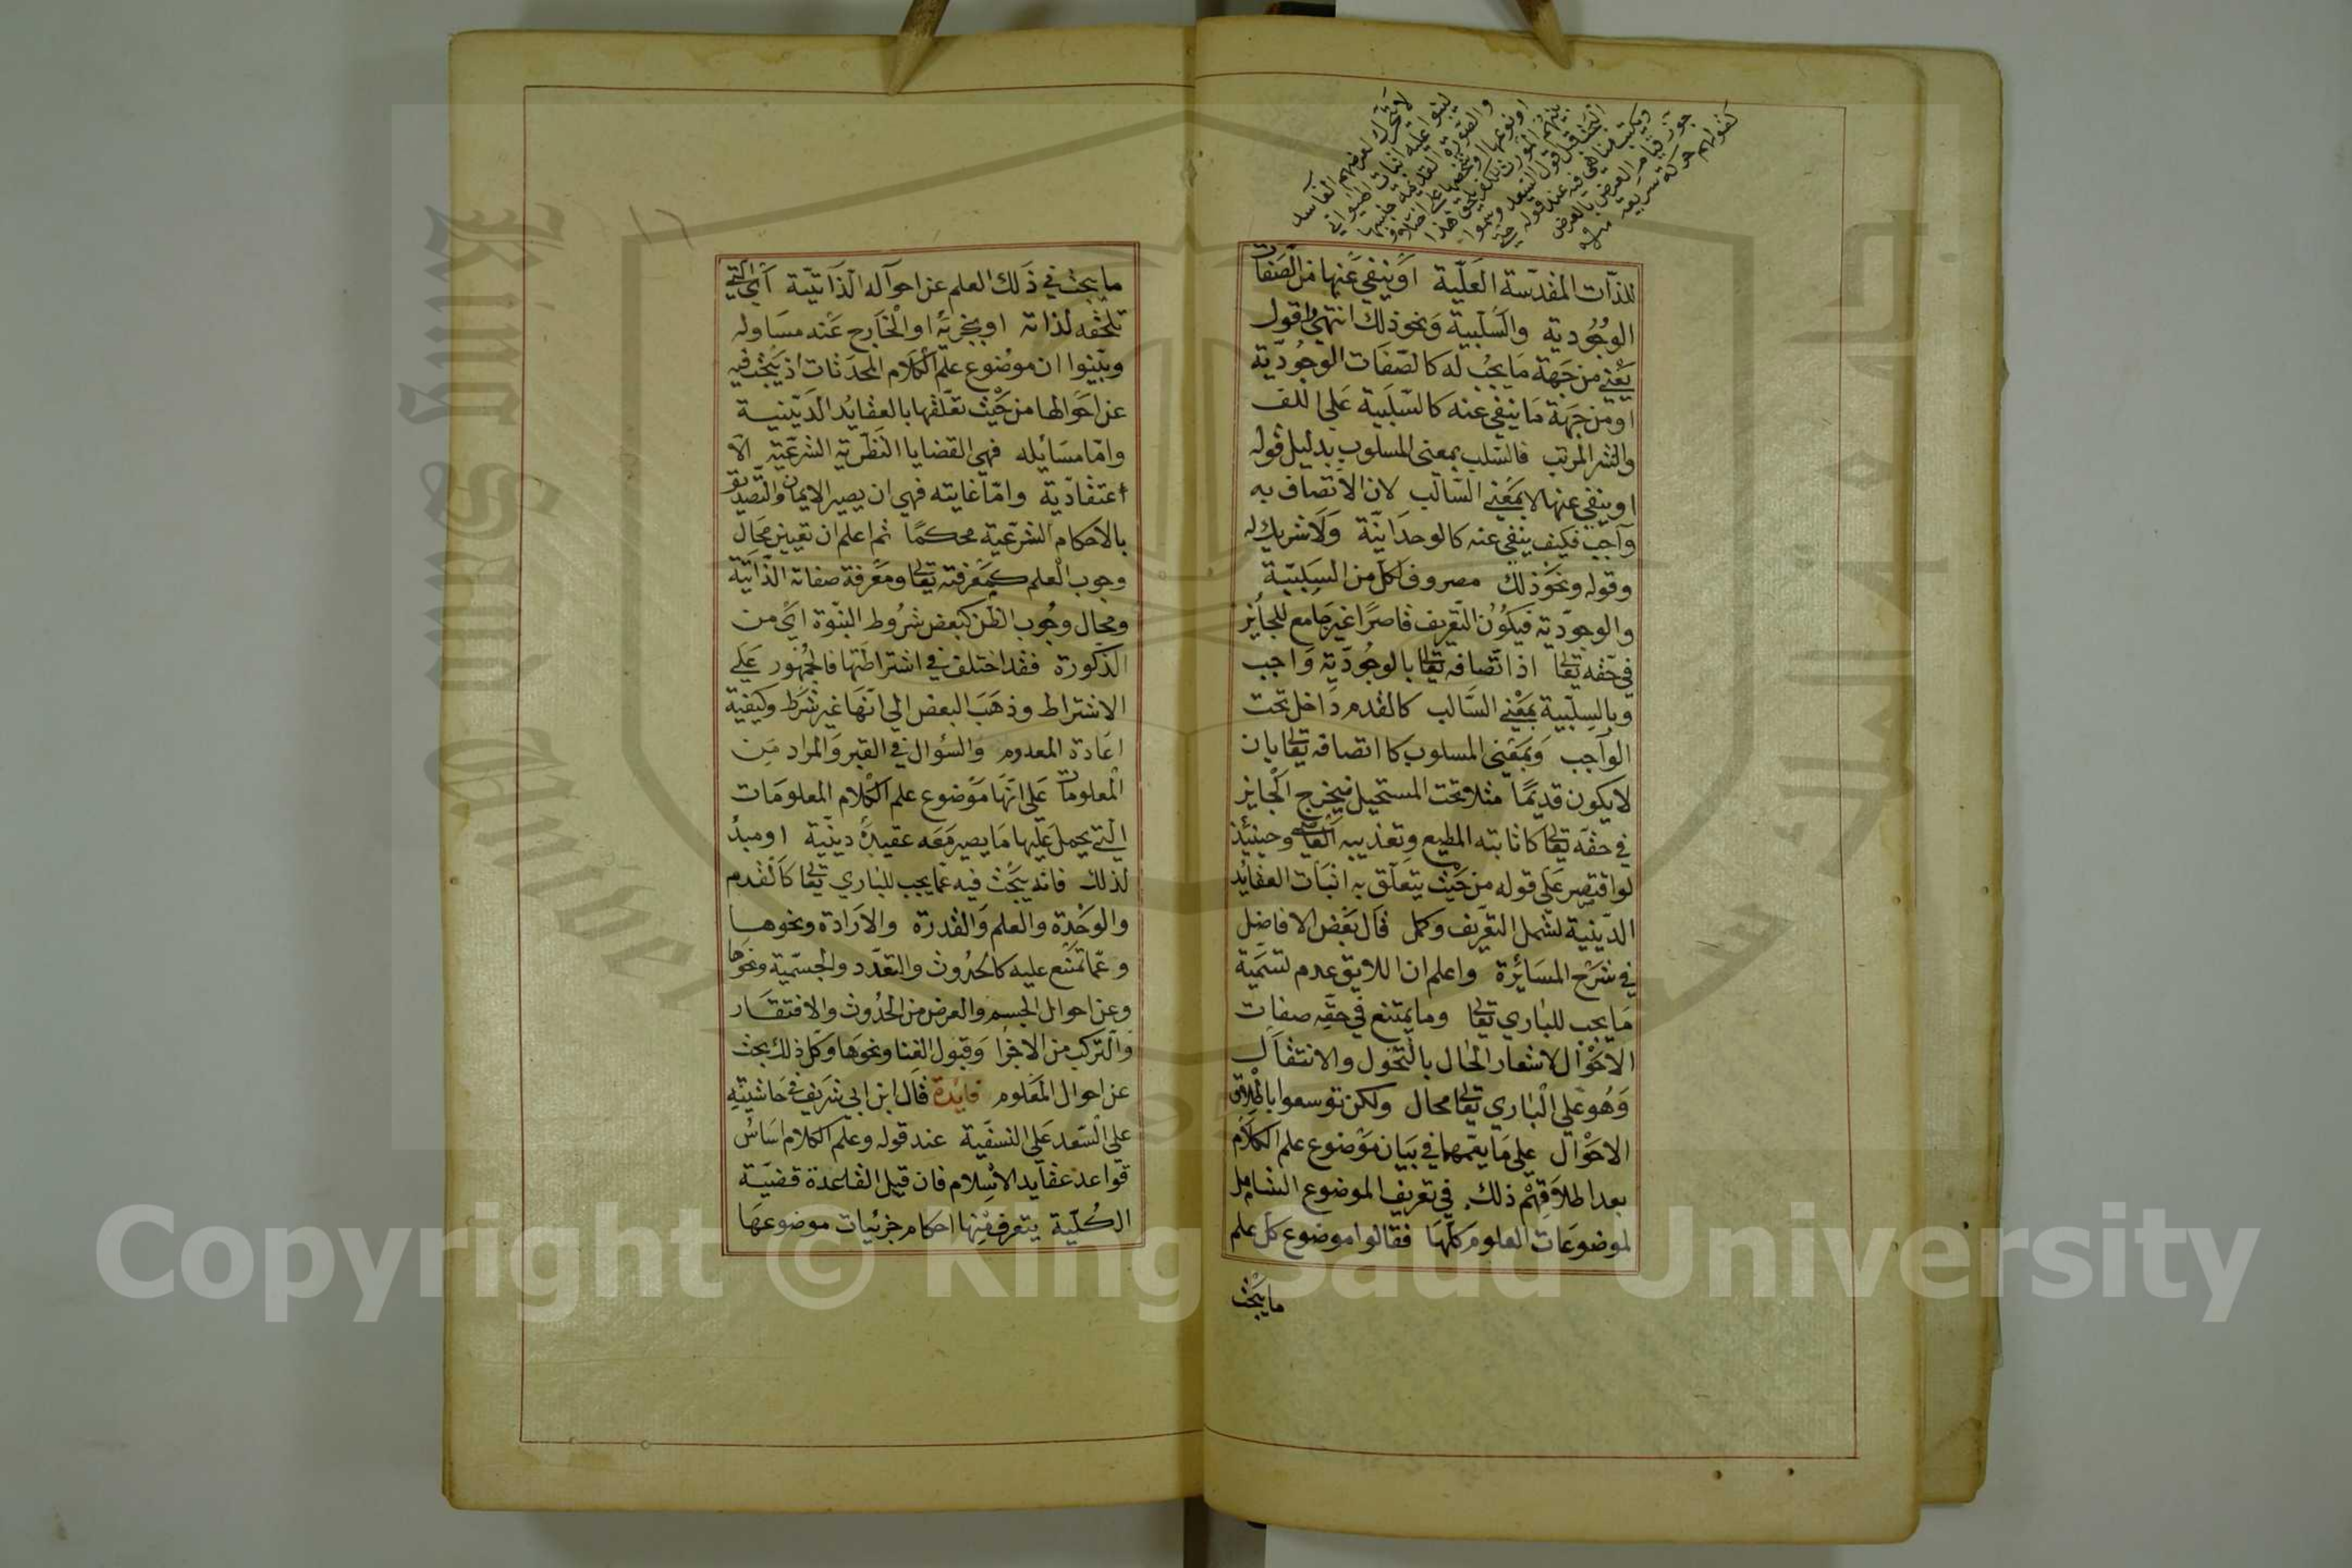 للذات المقدسة العلية او ينفي عنها من الصفات
الوجودية والسلبية ونحو ذلك انتهي واقول
يعني من جهة ما يجب له كالصفات الوجودية
او من جهة ما ينفي عنه كالسلبية علي اللف
والنشر المرتب فالسلب بمعنى المسلوب بدليل قوله
او ينفي عنها لا بمعني السالب لان الاتصاف به
واجب فكيف ينفي عنه كالوحدانية ولا شريك له
وقوله ونحو ذلك مصروف لكل من السلبية
والوجودية فيكون التعريف قاصرا غير جامع للجائز
في حقه تعالى اذ اتصافه تعالى بالوجودية واجب
وبالسلبية بمعني السالب كالقدم داخل تحت
الواجب وبمعنى المسلوب كاتصافه تعالى بان
لا يكون قديما مثلا تحت المستحيل فيخرج الجايز
في حقه تعالى كاثابته المطيع وتعذيبه العاصي وحينئذ
لو اقتصر علي قوله من حيث يتعلق به اثبات العقائد
الدينية لشمل التعريف وكمل قال بعض الافاضل
في شرح المسائرة واعلم ان اللايق عدم تسمية
ما يجب للباري تعالى وما يمتنع في حقه صفات
الاحوال لاشعار الحال بالتحول والانتقال
وهو علي الباري تعالى محال ولكن توسعوا باطلاق
الاحوال علي ما يعمها في بيان موضوع علم الكلام
بعد اطلاقهم ذلك في تعريف الموضوع الشامل
لموضوعات العلوم كلها فقالوا موضوع كل علم
ما يبحث
ما يبحث في ذلك العلم عن احواله الذاتية أي التي
تلحقه لذاته او بجزئه او الخارج عنه مساو له
وبينوا ان موضوع علم الكلام المحدثات اذ يبحث فيه
عن احوالها من حيث تعلقها بالعقايد الدينية
واما مسايله فهي القضايا النظرية الشرعية الا
اعتقادية واما غايته فهي ان يصير الايمان والتصديق
بالاحكام الشرعية محكما ثم اعلم ان تعيين محال
وجوب العلم كمعرفته تعالى ومعرفة صفاته الذاتية
ومحال وجوب الظن كبعض شروط النبوة اي من
الذكورة فقد اختلف في اشتراطها فالجمهور علي
الاشتراط وذهب البعض الي انها غير شرط وكيفية
اعادة المعدوم والسؤال في القبر والمراد من
المعلومات علي انها موضوع علم الكلام المعلومات
التي يحمل عليها ما يصير معه عقيدة دينية او مبدأ
لذلك فانه يبحث فيه عما يجب للباري تعالى كالقدم
والوحدة والعلم والقدرة والارادة ونحوها
وعما تمتنع عليه كالحدوث والتعدد والجسمية ونحوها
وعن احوال الجسم والعرض من الحدوث والافتقار
والتركب من الاجزا وقبول الفنا ونحوها وكل ذلك بحث
عن احوال المعلوم فايدة قال ابن ابي شريف في حاشيته
علي السعد علي النسفية عند قوله وعلم الكلام اساس
قواعد عقايد الاسلام فان قيل القاعدة قضية
الكلية يتعرف منها احكام جزئيات موضوعها
Copyright © King Saud University